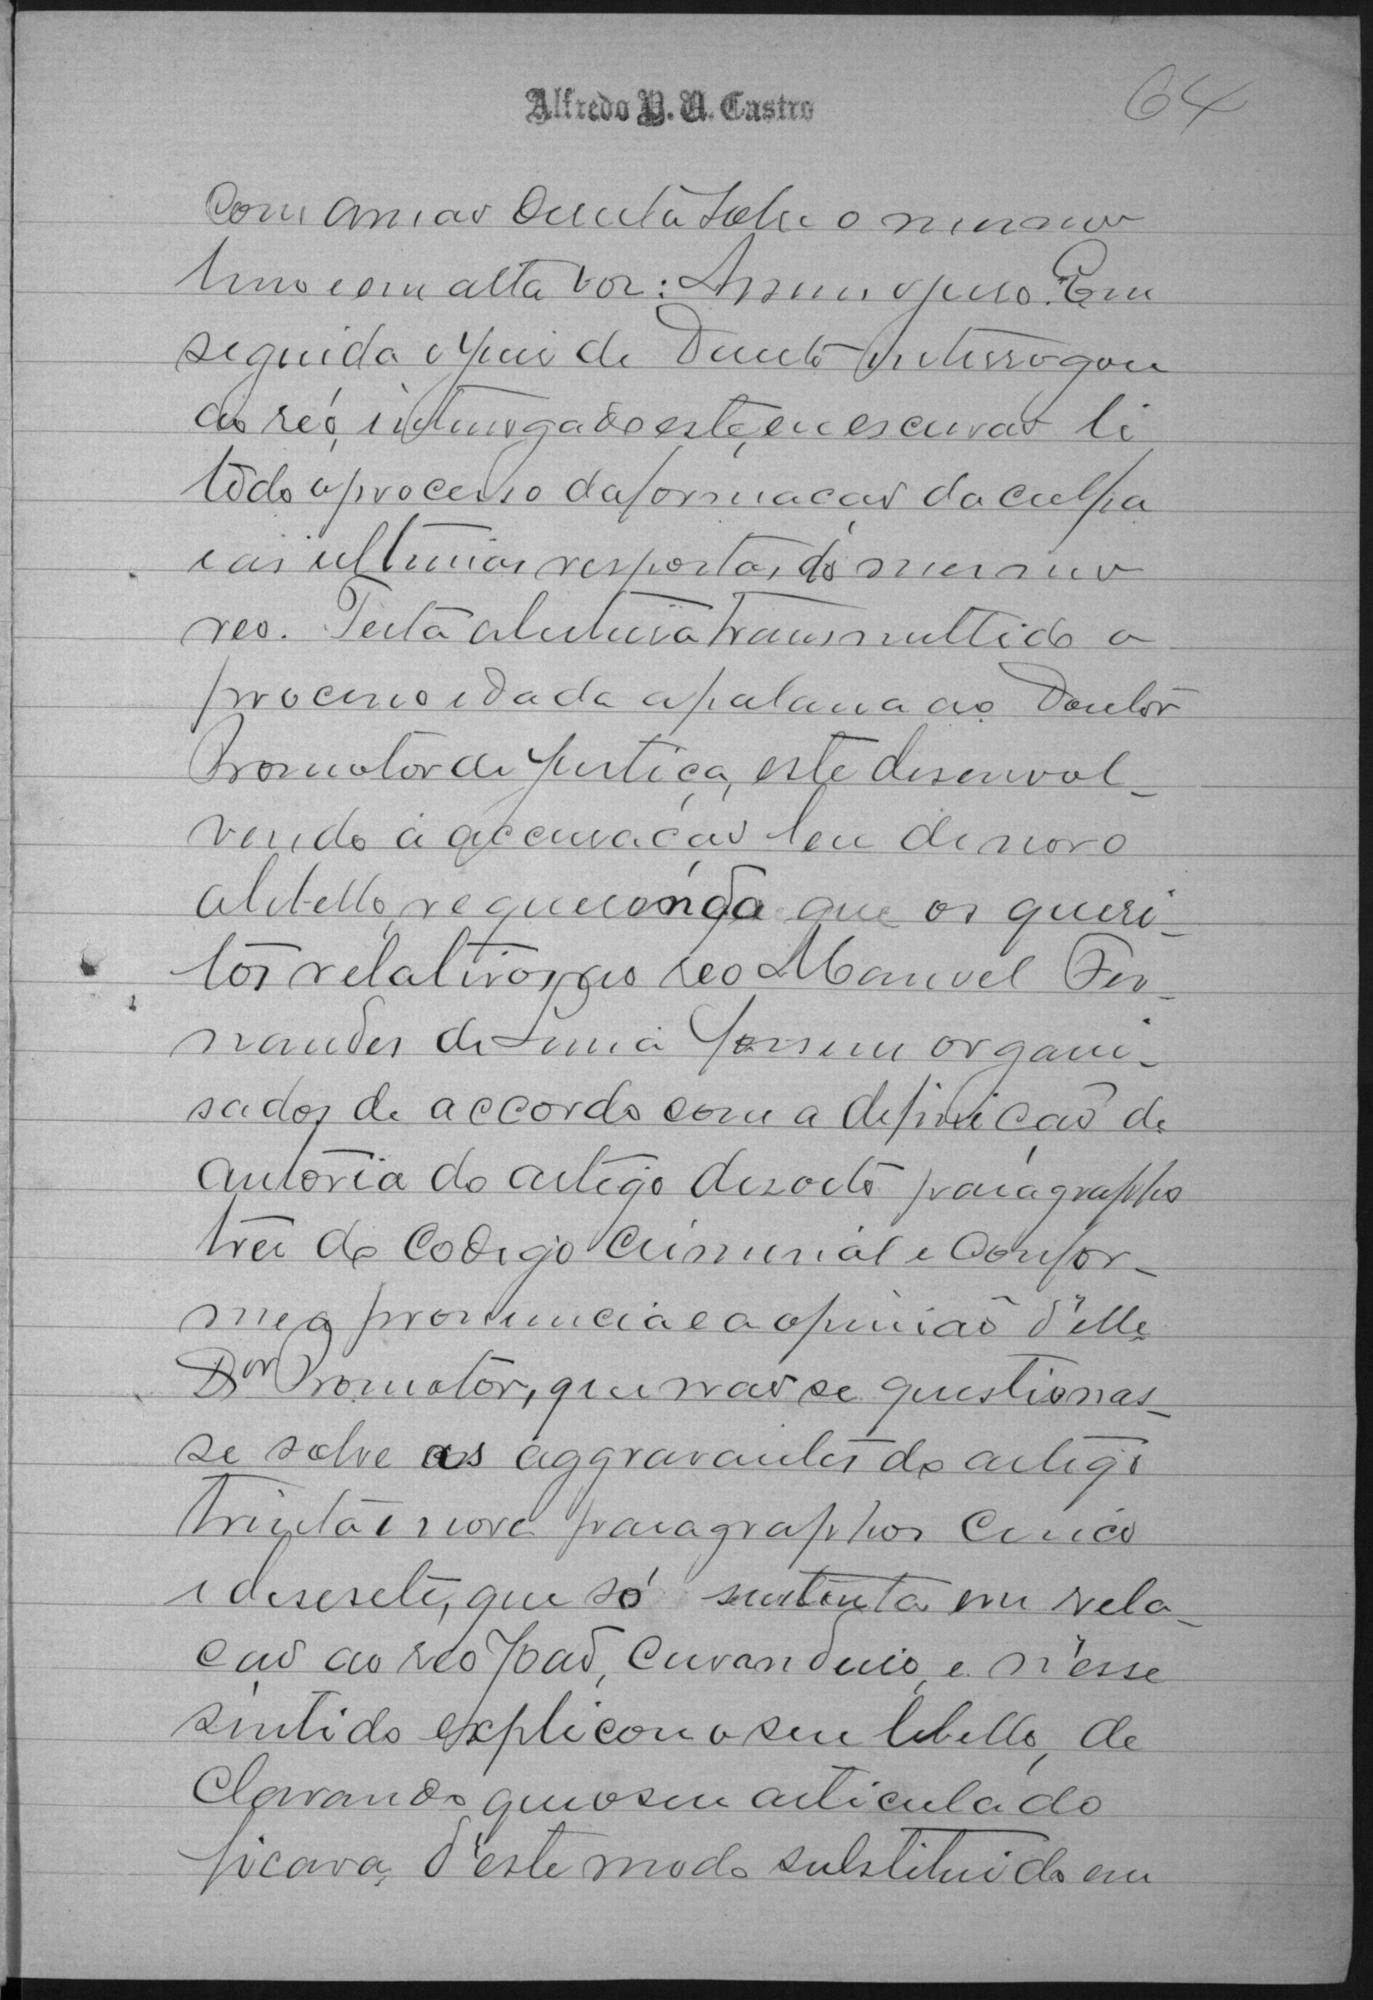 Alfredo P. A. Castro
64
com a mão direita sobre o mesmo
livro e em alta voz: Assim o juro. Em
seguida o Juiz de Direito interrogou
ao réo, interrogado este, eu escrivão li
todo o processo da formação da culpa
e as ultimas respostas do mesmo
reo. Feita a leitura transmittido o
processo e dada a palavra ao Doutor
Promotor de Justiça, este desenvol_
vendo a accusação leu de novo
o libello, requerendo que os quesi_
tos relativos ao reo Manoel Fer_
nandes de Lima fossem organi_
sados de accordo com a definição de
autoria do artigo desoito paragrapho
tres do Codigo Criminal e confor_
me a pronuncia e a opinião d'elle
Dor Promotor, que não se questionas_
se sobre as aggravantes do artigo
trinta e nove paragraphos cinco
e desesete, que só sustenta em rela_
ção ao reo João, Curandeiro, e n'esse
sentido explicou o seu libello, de
clarando que o seu articulado
ficava d'este modo substituido em